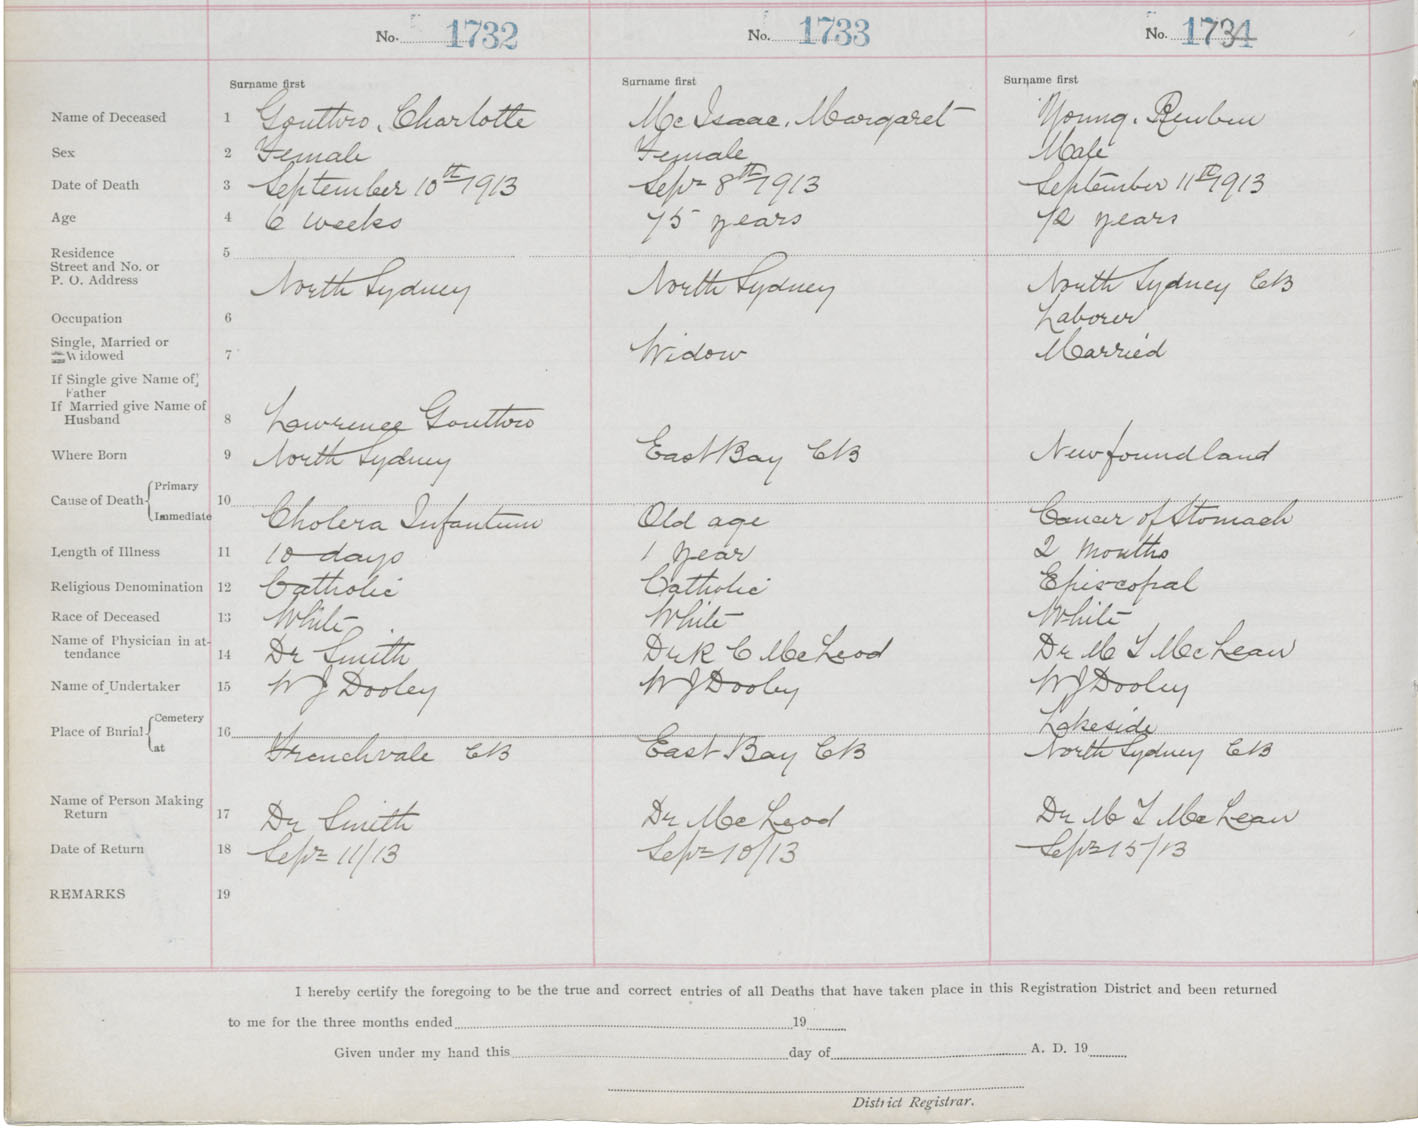 No. 1732 No. 1733 No. 1734
Surname first Surname first Surname first
Name of Deceased 1 Gouthro, Charlotte Mc Isaac, Margaret Young, Reuben
Sex 2 Female Female Male
Date of Death 3 September 10th 1913 Sept 8th 1913 September 11th 1913
Age 4 6 weeks 75 years 72 years
Residence 5
Street and No. or
P. O. Address North Sydney North Sydney North Sydney CB
Occupation 6 Laborer
Single, Married or
Widowed 7 Widow Married
If Single give Name of
Father
If Married give Name of
Husband 8 Lawrence Gouthro
Where Born 9 North Sydney East Bay CB Newfoundland
Cause of Death { Primary
10
Immediate Cholera Infantum Old age Cancer of Stomach
Length of Illness 11 10 days 1 year 2 months
Religious Denomination 12 Catholic Catholic Episcopal
Race of Deceased 13 White White White
Name of Physician in at-
tendance 14 Dr Smith Dr R C McLeod Dr M T McLean
Name of Undertaker 15 W J Dooley W J Dooley W J Dooley
Place of Burial { Cemetery 16 Lakeside
at Frenchvale CB East Bay CB North Sydney CB
Name of Person Making
Return 17 Dr Smith Dr McLeod Dr M T McLean
Date of Return 18 Sept 11/13 Sept 10/13 Sept 15/13
REMARKS 19
I hereby certify the foregoing to be the true and correct entries of all Deaths that have taken place in this Registration District and been returned
to me for the three months ended 19
Given under my hand this day of A. D. 19
District Registrar.